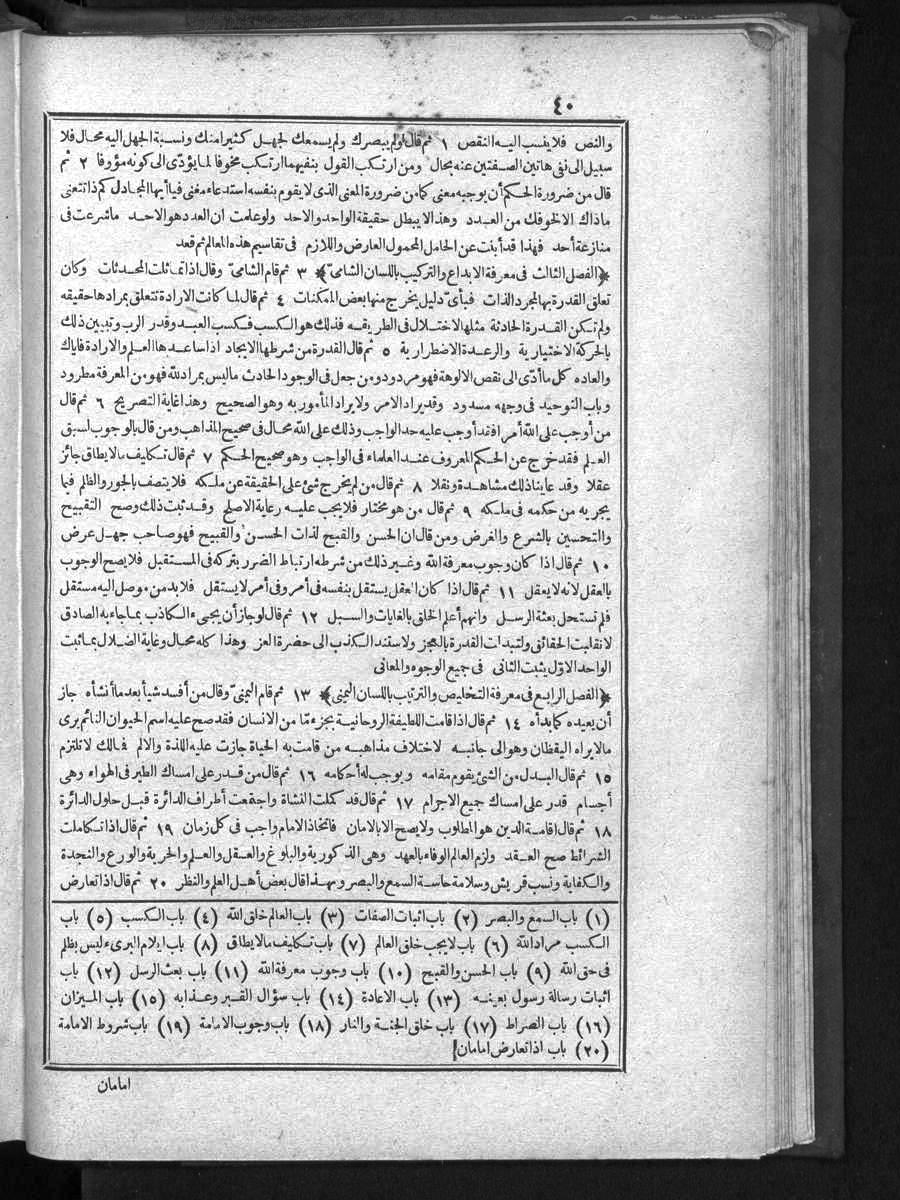 ٤٠
والنص فلا ينسب اليه النقص ١ ثم قال لو لم يبصرك ولم يسمعك لجهل كثيرا منك ونسبة الجهل اليه محال فلا
سبيل الى نفى هاتين الصفتين عنه بحال ومن ارتكب القول بنفيهما ارتكب مخوفا لما يؤدى الى كونه مؤوفا ٢ ثم
قال من ضرورة الحكم أن يوجبه معنى كما من ضرورة المعنى الذى لا يقوم بنفسه استدعاء مغنى فيا أيها المجادل كم ذا تتعنى
ماذاك الا لخوفك من العدد وهذا لا يبطل حقيقة الواحد والاحد ولو علمت ان العدد هو الاحد ما شرعت فى
منازعة أحد فهذا قد أبنت عن الحامل المحمول العارض واللازم فى تقاسيم هذه المعالم ثم قعد
﴿الفصل الثالث فى معرفة الابداع والتركيب باللسان الشامى﴾ ٣ ثم قام الشامى وقال اذا تماثلت المحدثات وكان
تعلق القدرة بها لمجرد الذات فبأى دليل يخرج منها بعض الممكنات ٤ ثم قال لما كانت الارادة تتعلق بمرادها حقيقه
ولم تكن القدرة الحادثة مثلها لاختلال فى الطريقه فذلك هو الكسب فكسب العبد وقدر الرب وتبيين ذلك
بالحركة الاختيارية والرعدة الاضطرارية ٥ ثم قال القدرة من شرطها الايجاد اذا ساعدها العلم والارادة فاياك
والعاده كل ما أدى الى نقص الالوهة فهو مردود ومن جعل فى الوجود الحادث ما ليس بمراد لله فهو من المعرفة مطرود
وباب التوحيد فى وجهه مسدود وقد يراد الامر ولا يراد المأمور به وهو الصحيح وهذا غاية التصريح ٦ ثم قال
من أوجب على الله أمرا فقد أوجب عليه حد الواجب وذلك على الله محال فى صحيح المذاهب ومن قال بالوجوب لسبق
العلم فقد خرج عن الحكم المعروف عند العلماء فى الواجب وهو صحيح الحكم ٧ ثم قال تكليف ما لا يطاق جائز
عقلا وقد عاينا ذلك مشاهدة ونقلا ٨ ثم قال من لم يخرج شئ على الحقيقة عن ملكه فلا يتصف بالجور والظلم فيما
يجريه من حكمه فى ملكه ٩ ثم قال من هو مختار فلا يجب عليه رعاية الاصلح وقد ثبت ذلك وصح التقبيح
والتحسين بالشرع والغرض ومن قال ان الحسن والقبح لذات الحسن والقبيح فهو صاحب جهل عرض
١٠ ثم قال اذا كان وجوب معرفة الله وغير ذلك من شرطه ارتباط الضرر بتركه فى المستقبل فلا يصح الوجوب
بالعقل لانه لا يعقل ١١ ثم قال اذا كان العقل يستقل بنفسه فى أمر وفى أمر لا يستقل فلا بد من موصل اليه مستقل
فلم تستحل بعثة الرسل وانهم أعلم الخلق بالغايات والسبل ١٢ ثم قال لو جاز أن يجىء الكاذب بما جاء به الصادق
لانقلبت الحقائق ولتبدات القدرة بالعجز ولاستند الكذب الى حضرة العز وهذا كله محال وغاية الضلال بما ثبت
الواحد الاول يثبت الثانى فى جميع الوجوه والمعانى
﴿الفصل الرابع فى معرفة التخليص والترتيب باللسان اليمنى﴾ ١٣ ثم قام اليمنى وقال من أفسد شيأ بعد ما أنشأه جاز
أن يعيده كما بدأه ١٤ ثم قال اذا قامت اللطيفة الروحانية بجزء مّا من الانسان فقد صح عليه اسم الحيوان النائم يرى
ما لا يراه اليقظان وهو الى جانبه لاختلاف مذاهبه من قامت به الحياة جازت عليه اللذة والالم فمالك لا تلتزم
١٥ ثم قال البدل من الشئ يقوم مقامه ويوجب له أحكامه ١٦ ثم قال من قدر على امساك الطير فى الهواء وهى
أجسام قدر على امساك جميع الاجرام ١٧ ثم قال قد كملت النشاة واجتمعت أطراف الدائرة قبل حلول الدائرة
١٨ ثم قال اقامة الدين هو المطلوب ولا يصح الا بالامان فاتخاذ الامام واجب فى كل زمان ١٩ ثم قال اذا تكاملت
الشرائط صح العقد ولزم العالم الوفاء بالعهد وهى الذكورية والبلوغ والعقل والعلم والحرية والورع والنجدة
والكفاية ونسب قريش وسلامة حاسة السمع والبصر وبهذا قال بعض أهل العلم والنظر ٢٠ ثم قال اذا تعارض
(١) باب السمع والبصر (٢) باب اثبات الصفات (٣) باب العالم خلق الله (٤) باب الكسب (٥) باب
الكسب مراد الله (٦) باب لا يجب خلق العالم (٧) باب تكليف ما لا يطاق (٨) باب ايلام البرىء ليس بظلم
فى حق الله (٩) باب الحسن والقبيح (١٠) باب وجوب معرفة الله (١١) باب بعث الرسل (١٢) باب
اثبات رسالة رسول بعينه (١٣) باب الاعادة (١٤) باب سؤال القبر وعذابه (١٥) باب الميزان
(١٦) باب الصراط (١٧) باب خلق الجنة والنار (١٨) باب وجوب الامامة (١٩) باب شروط الامامة
(٢٠) باب اذا تعارض امامان
امامان